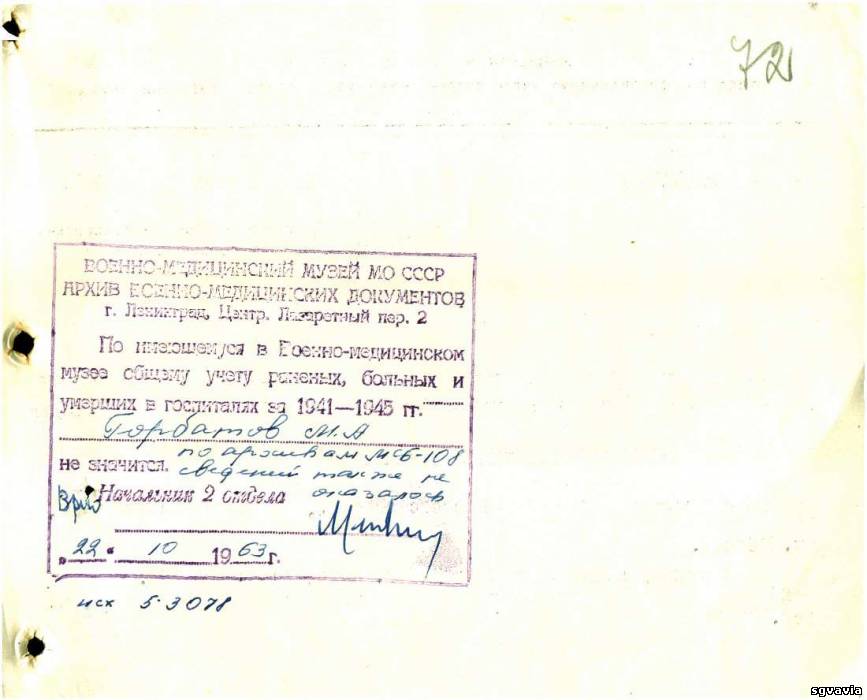 72
ВОЕННО-МЕДИЦИНСКИЙ МУЗЕЙ МО СССР
АРХИВ ВОЕННО-МЕДИЦИНСКИХ ДОКУМЕНТОВ
г. Ленинград, Центр. Лазаретный пер. 2
По имеющемуся в Военно-медицинском
музее общему учету раненых, больных и
умерших в госпиталях за 1941—1945 гг.
Горбатов М.А
не значится. по архивам МСБ-108
сведений также не
Врио Начальник 2 отдела оказалось
„22“ 10 1963 г.
исх 5-3078
sgvavia